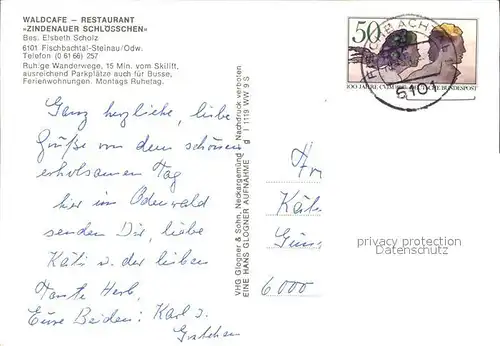 WALDCAFE – RESTAURANT
»ZINDENAUER SCHLÖSSCHEN«
Bes. Elsbeth Scholz
6101 Fischbachtal-Steinau/Odw.
Telefon (0 61 66) 257
Ruhige Wanderwege, 15 Min. vom Skilift,
ausreichend Parkplätze auch für Busse,
Ferienwohnungen. Montags Ruhetag.
Ganz herzliche, liebe
Grüße von dem schönen
erholsamen Tag
hier im Odenwald
senden Dir, liebe
Käti u. der lieben
Tante Herb,
Eure Beiden: Karl u.
Gretchen
VHG Glogner & Sohn, Neckargemünd Nachdruck verboten
EINE HANS GLOGNER AUFNAHME g I 1119 WW 9
50
100 JAHRE CVJM 1983 DEUTSCHE BUNDESPOST
FISCHBACHTAL
6101
Käte
6000
privacy protection
Datenschutz